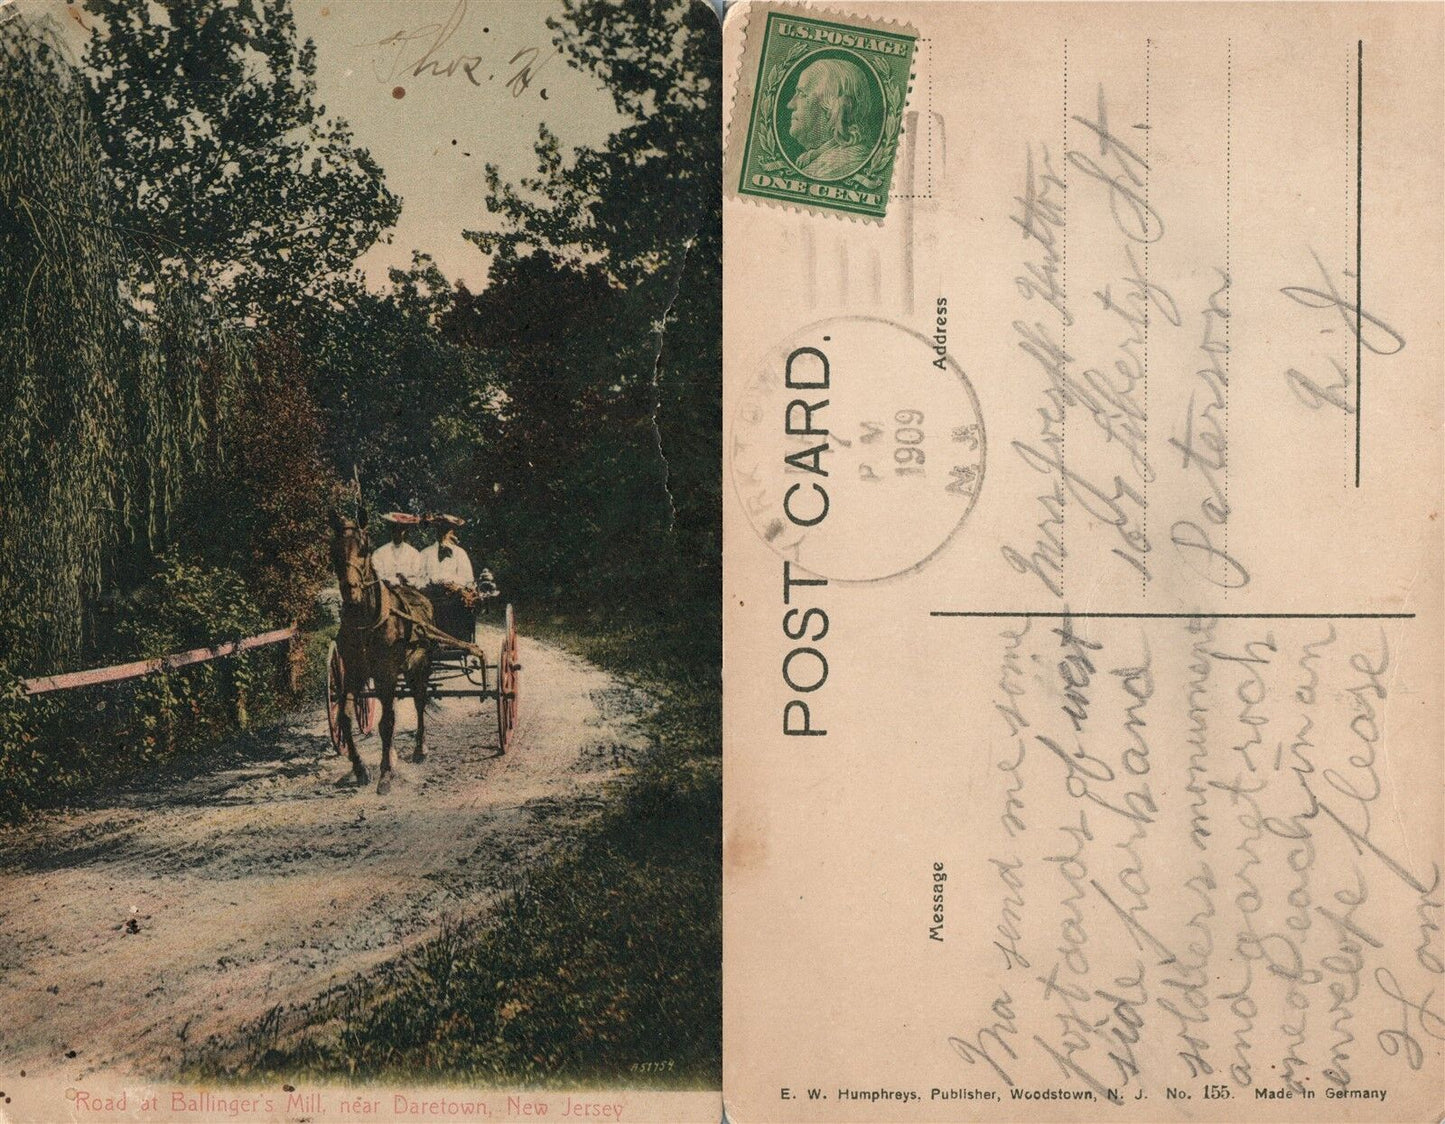 Thos. H.
A51754
Road at Ballinger's Mill, near Daretown, New Jersey
U.S. POSTAGE
ONE CENT
POST CARD.
P M
1909
N.J.
Address
Mrs Joseph Hutton
Liberty St.
Paterson
N. J.
Message
Ma send me some
post cards of west
side park and
soldiers monument
and garret rock
one of each in an
envelope please
E. W. Humphreys, Publisher, Woodstown, N. J. No. 155. Made in Germany